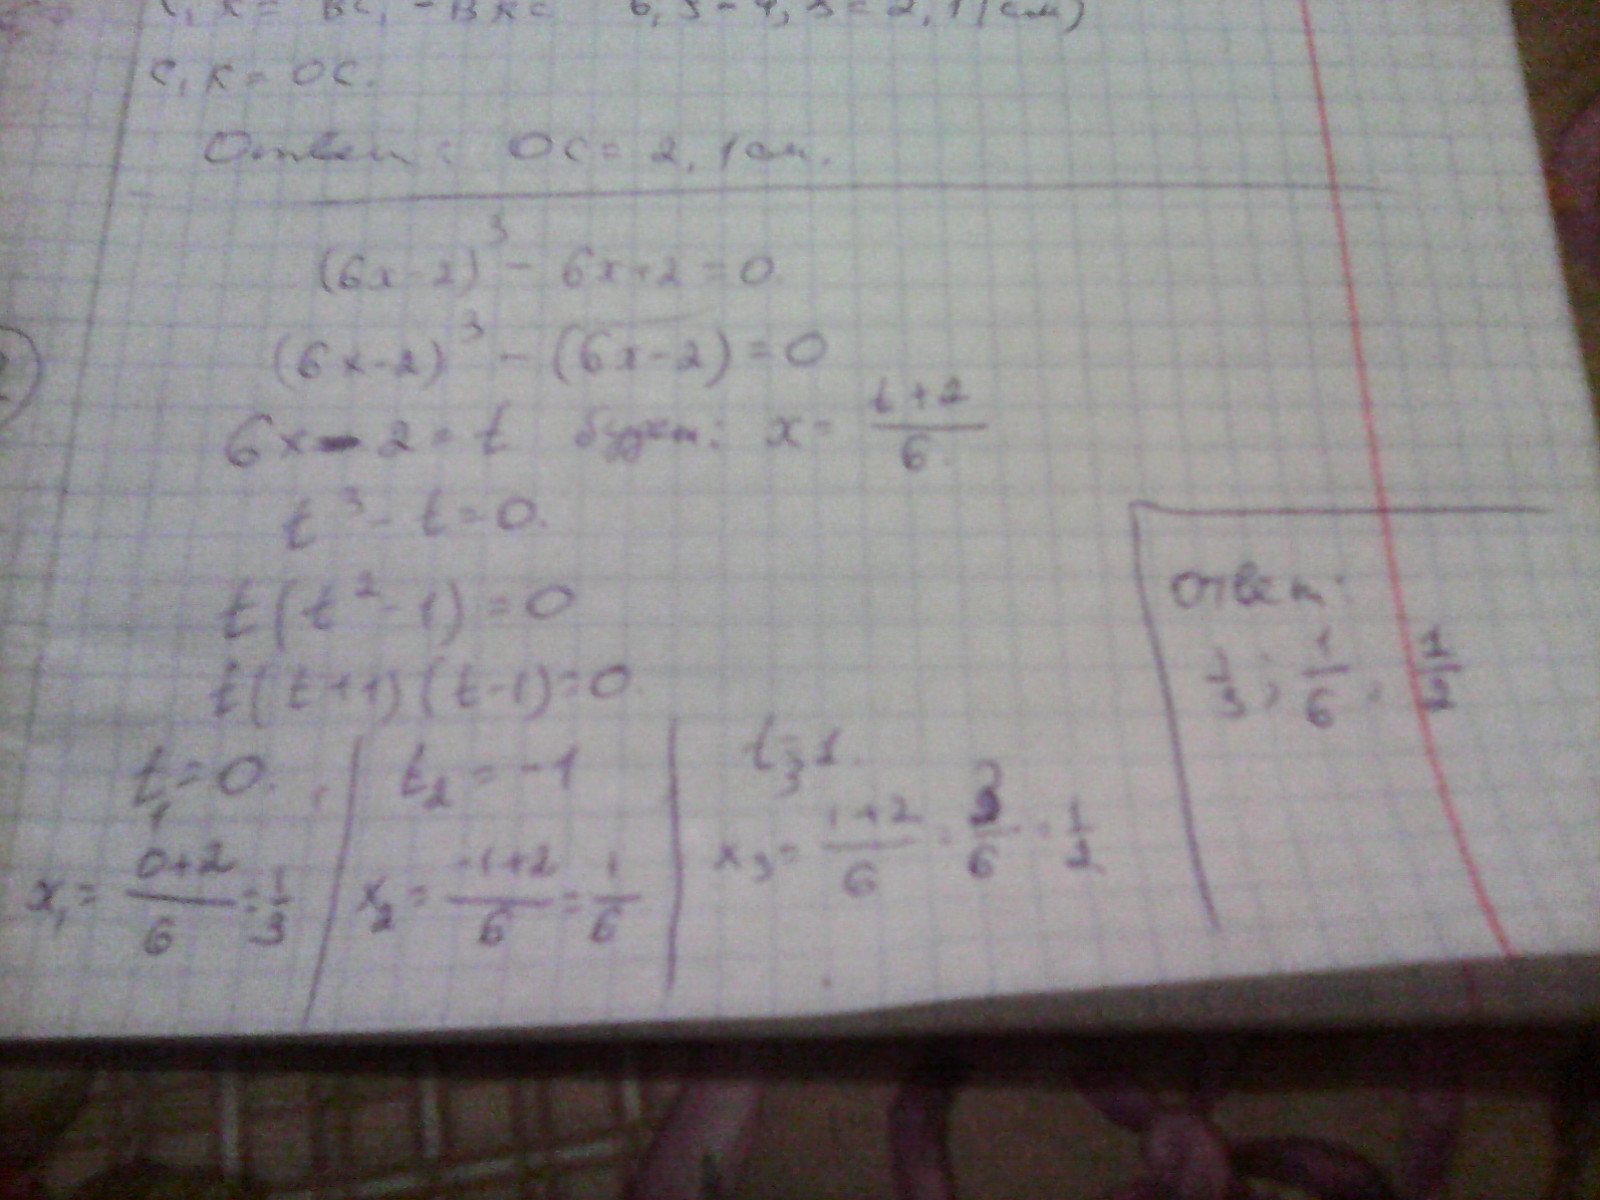 C₁K = BC₁ - BK = 6,5-4,3=2,1(см)
C₁K = OC.
Ответ: OC = 2,1см.
(6x-2)³ - 6x+2=0
(6x-2)³ - (6x-2)=0
6x-2=t будет: x= (t+2)/6.
t³-t=0.
t(t²-1)=0
t(t+1)(t-1)=0
t₁=0. t₂=-1 t₃=1.
x₁= (0+2)/6 = 1/3 x₂= (-1+2)/6 = 1/6 x₃= (1+2)/6 = 3/6 = 1/2
Ответ:
1/3; 1/6; 1/2